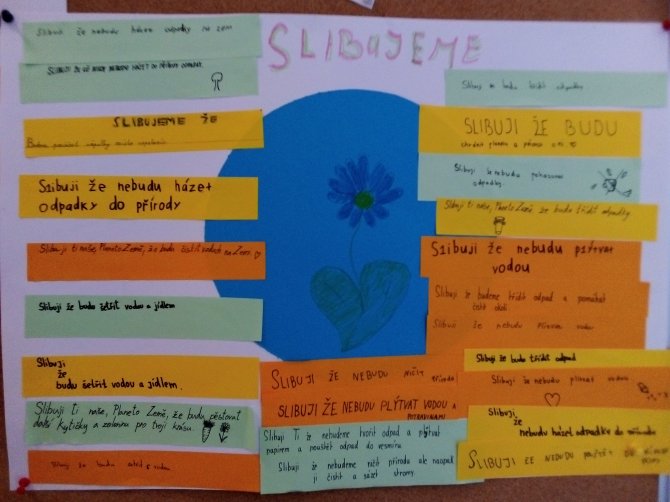 SLIBUJEME
Slibuji že nebudu házet odpadky na zem
SLIBUJI ŽE UŽ NIKDY NEBUDU HÁZET DO PŘÍRODY ODPADKY.
SLIBUJEME ŽE
Budeme
Slibuji že nebudu házet
odpadky do přírody
Slibuji ti naše, Planeto Země, že budu čistit vodu na Zemi.
Slibuji že budu šetřit vodou a jídlem
Slibuji
že
budu šetřit vodou a jídlem.
Slibuji Ti naše, Planeto Země, že budu pěstovat
další kytičky a zeleninu pro tvoji krásu.
Slibuji že budu šetřit s vodou
SLIBUJI ŽE NEBUDU NIČIT přírodu
SLIBUJI ŽE NEBUDU PLÝTVAT VODOU A
POTRAVINAMI
Slibuji Ti že nebudeme tvořit odpad a plýtvat
papírem a pouštět odpad do vesmíru.
Slibuji že nebudeme ničit přírodu ale naopak
ji čistit a sázet stromy.
Slibuji že budu třídit odpadky
SLIBUJI ŽE BUDU
chránit planetu a přírodu
Slibuji že nebudu pohazovat
odpadky.
Slibuji ti naše, Planeto Země že budu třídit odpadky
Slibuji že nebudu plýtvat
vodou
Slibuji že budeme třídit odpad a pomáhat
čistit okolí
Slibuji že nebudu plítvat vodou
Slibuji že budu třídit odpad
Slibuji že nebudu plítvat vodou
Slibuji
že
nebudu házel odpadky do přírodu
SLIBUJI ŽE NEBUDU POUŠTĚT